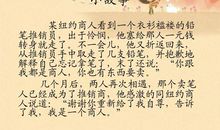 小故事
某纽约商人看到一个衣衫褴褛的铅
笔推销员，出于怜悯，他塞给那人一元钱
转身就走了，不一会儿，他又折返回来，
从推销员手中取走了几支铅笔，并抱歉地
解释自己忘记拿笔了，末了还说：“你跟
我都是商人，你也有东西要卖。”
几个月后，两人再次相遇，那个卖笔
人已经成为了推销商，他感激的同纽约商
人说道：“谢谢你重新给了我自尊，告诉
了我，我是一个商人。”